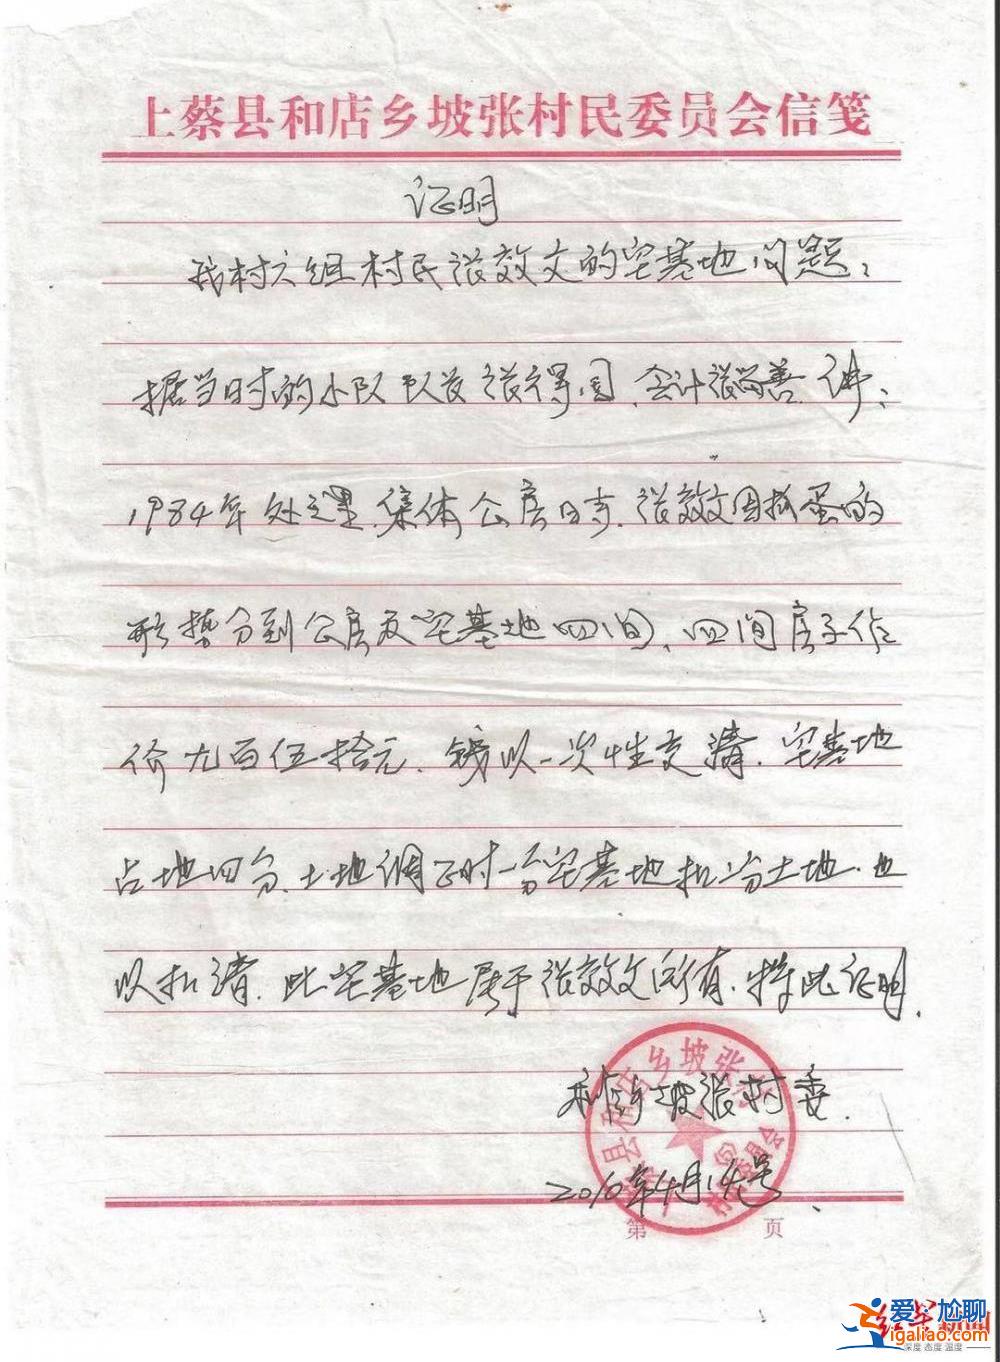 上蔡县和店乡坡张村民委员会信笺
证明
我村六组村民张效文的宅基地问题,
据当时的小队队长张得国、会计张尚善、讲、
1984年处理集体公房时、张效文因抓蛋的
形势分到公房及宅基地四间、四间房子作
价九百伍拾元、钱以一次性交清、宅基地
占地四分、土地调了时一分宅基地扣分土地、也
以扣清、此宅基地属于张效文所有、特此证明、
坡张村委、
2010年4月14号、
县和店乡坡张村
第 页
爱尬聊
igaliao.com
深度 态度 温度